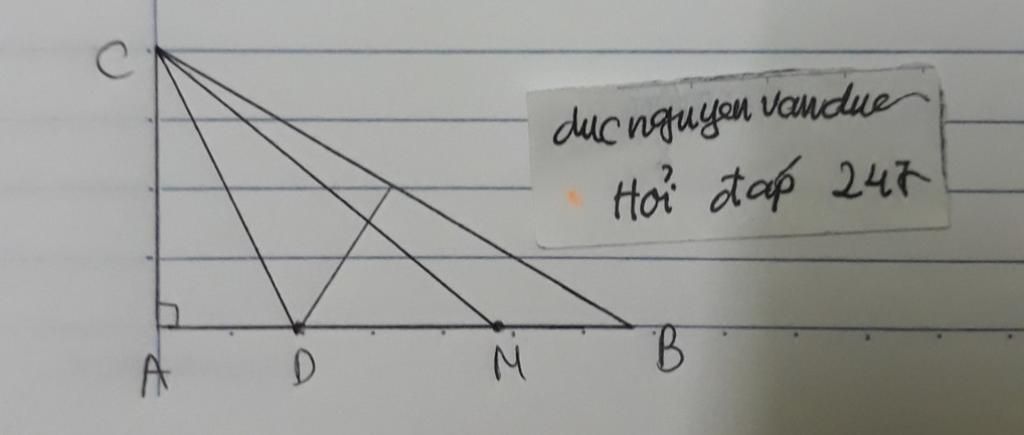 C
ducnguyenvanduc
Hỏi đáp 247
A D M B